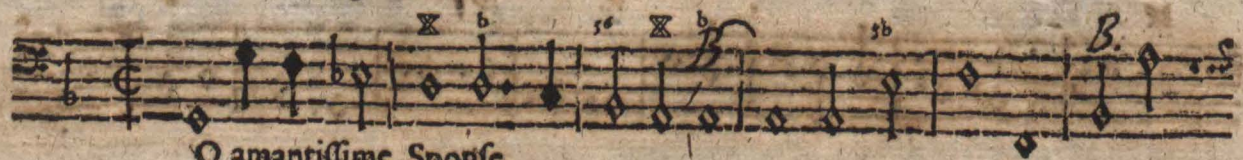 b 56 b B 5b B.
O amantissime Sponse